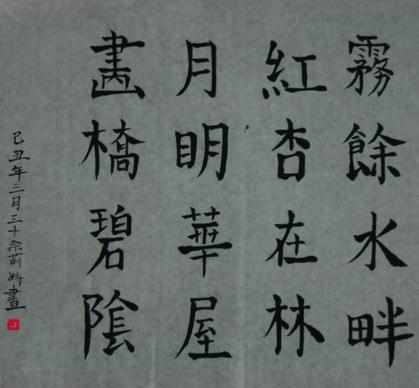 霧餘水畔
紅杏在林
月明華屋
畫橋碧陰
己丑年三月三十 畫